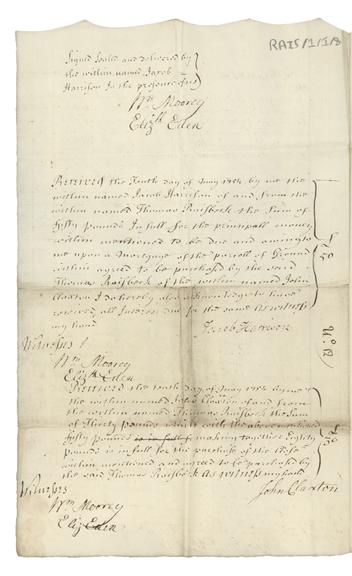 RAIS/1/1/8
Signed Sealed and delivered by
the within named Jacob
Harrison In the presence of us
Wm Moorey
Elizth Eden
Received the Tenth day of May by me the
within named Jacob Harrison of and from the
within named Thomas Raisbeck the Sum of
fifty Pounds In full for the principall money
within mentioned to be due and owing to
me upon a Mortgage of the parcell of Ground
within agreed to be purchased by the said
Thomas Raisbeck of the within named John
Claxton I do hereby also acknowledge to have
received all Interest due for the same As witness
my hand
£
50
Jacob Harrison
Witness
Wm Moorey
Elizth Eden
Received the tenth day of May by me
the within named John Claxton of and from
the within named Thomas Raisbeck the Sum
of Thirty pounds which with the above
fifty pounds is in full f making together Eighty
pounds is in full for the purchase of the
within mentioned and agreed to be purchased by
the said Thomas Raisbeck As witness my hand
£
30
John Claxton
Witness
Wm Moorey
Eliz Eden